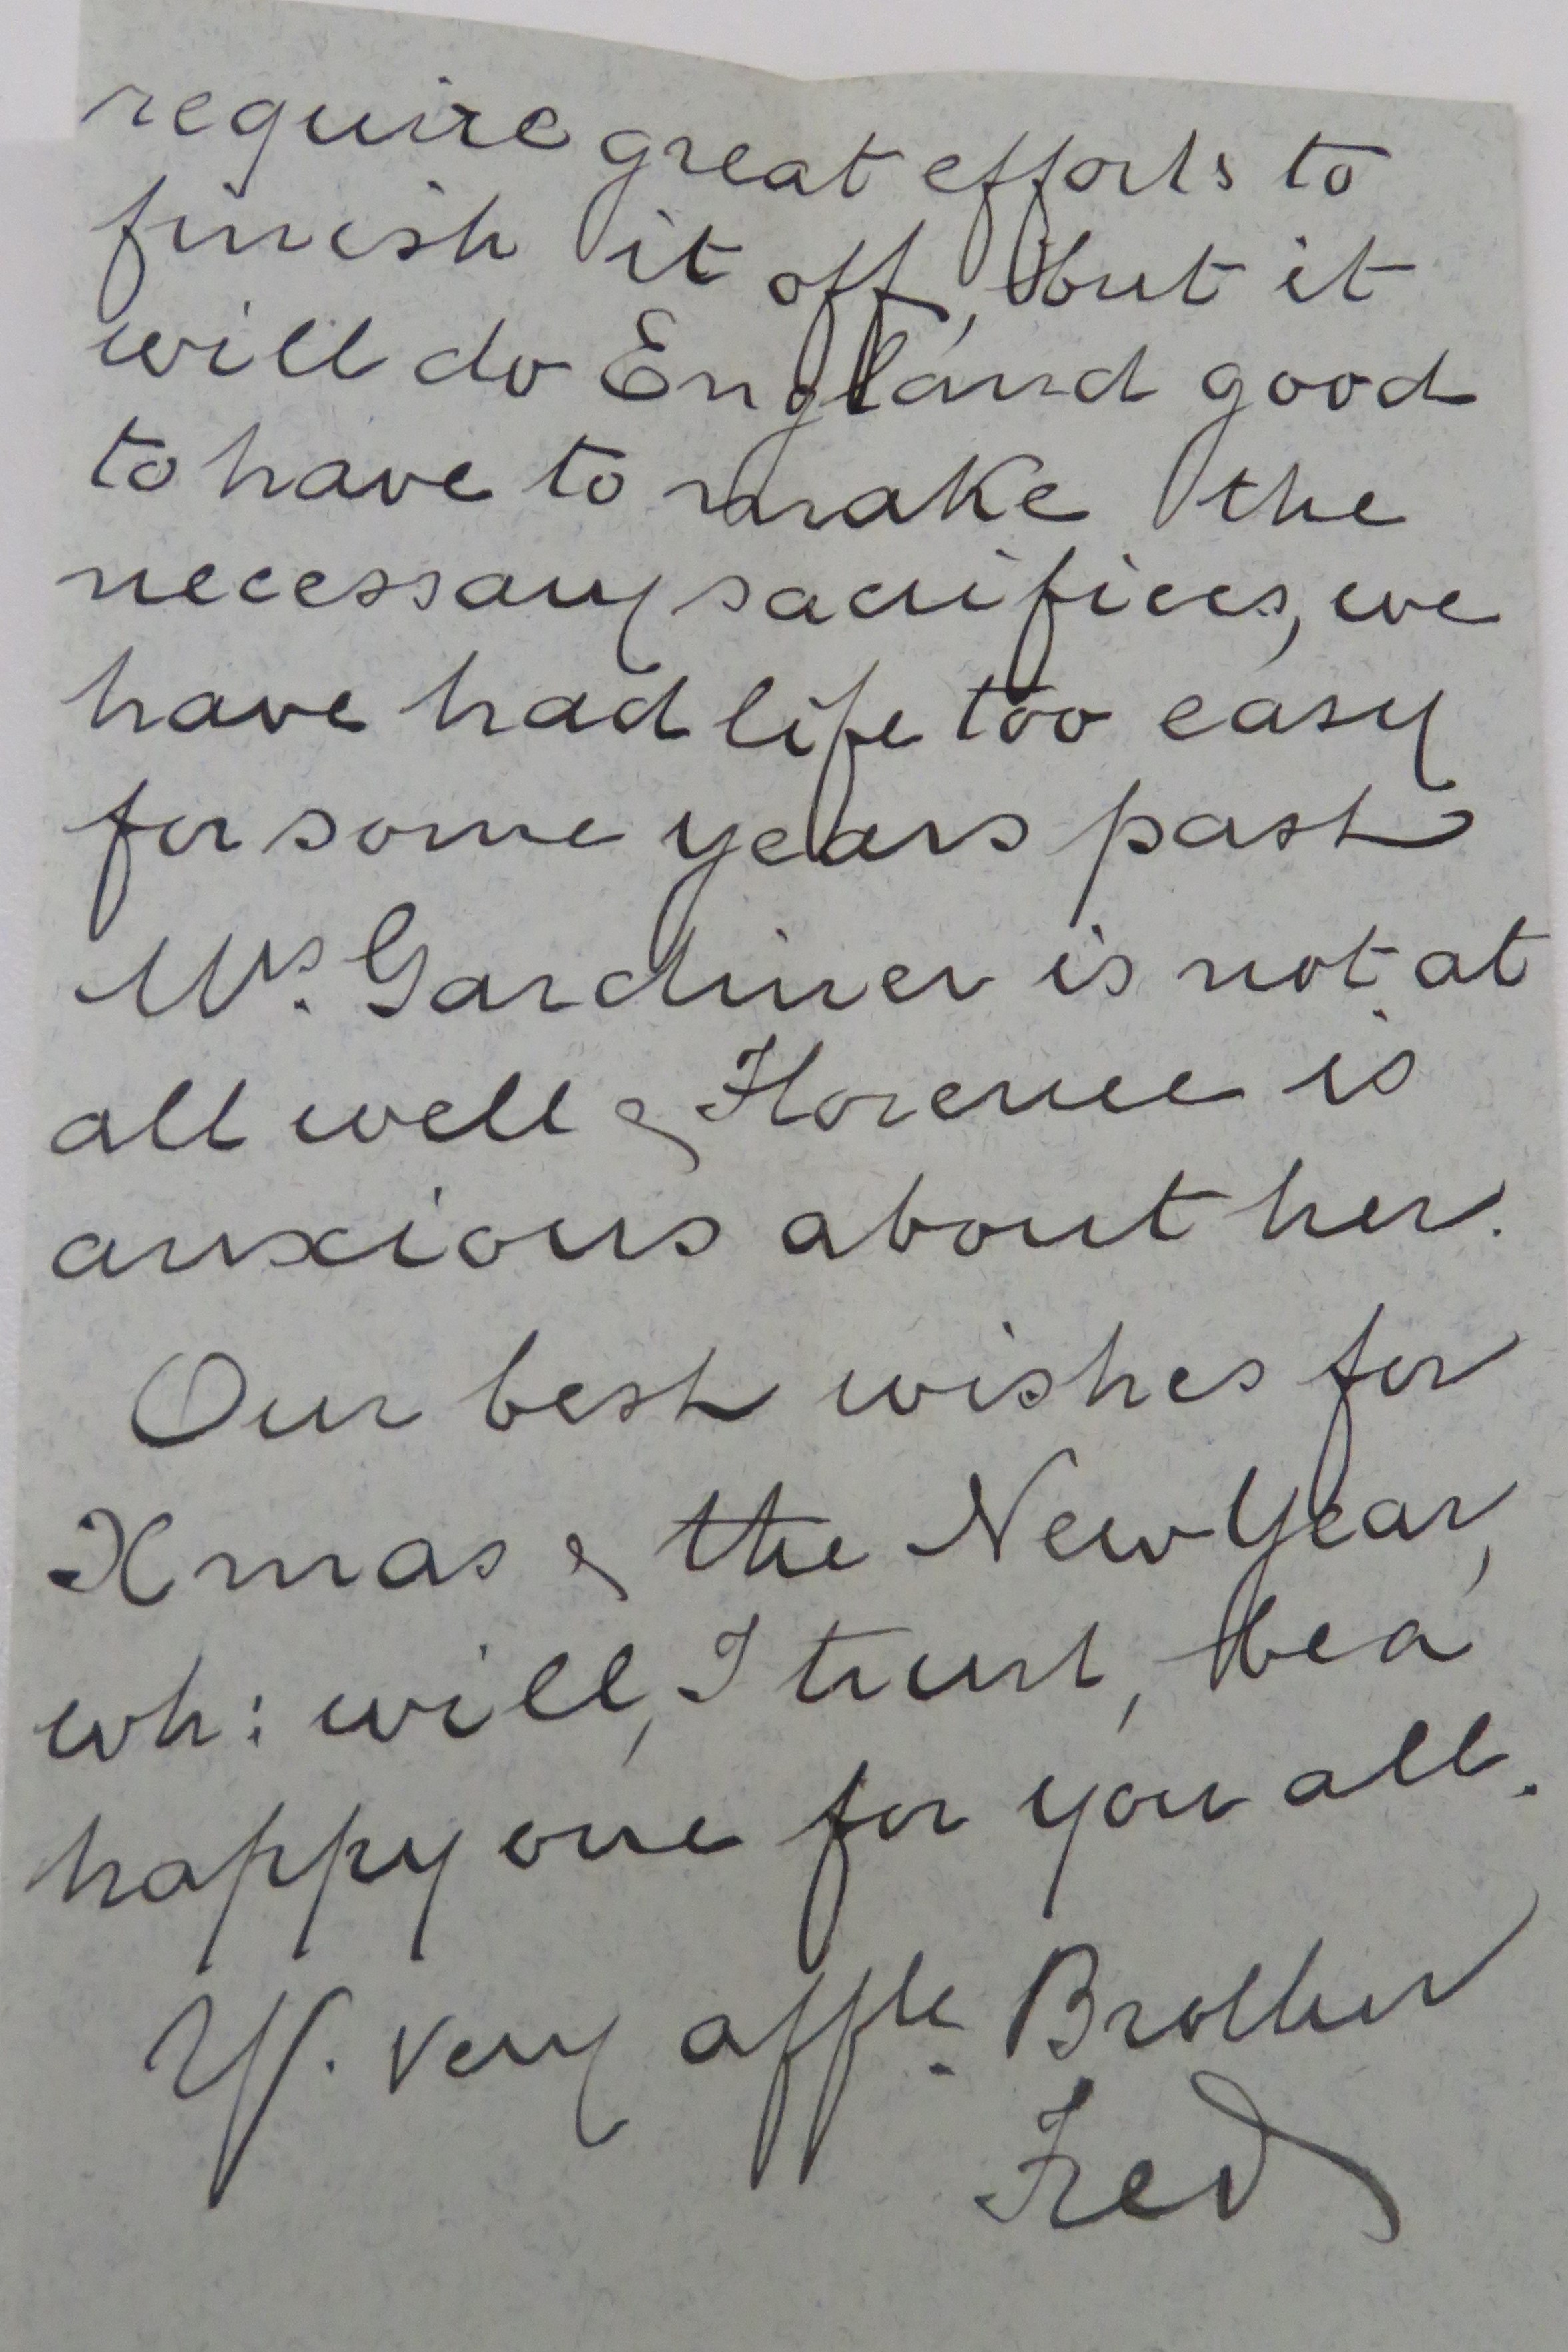 require great efforts to
finish it off, but it
will do England good
to have to make the
necessary sacrifices, we
have had life too easy
for some years past
Mrs. Gardiner is not at
all well & Florence is
anxious about her.
Our best wishes for
Xmas & the New Year,
wh: will, I trust, be a
happy one for you all.
Yr. very affte. Brother
Fred